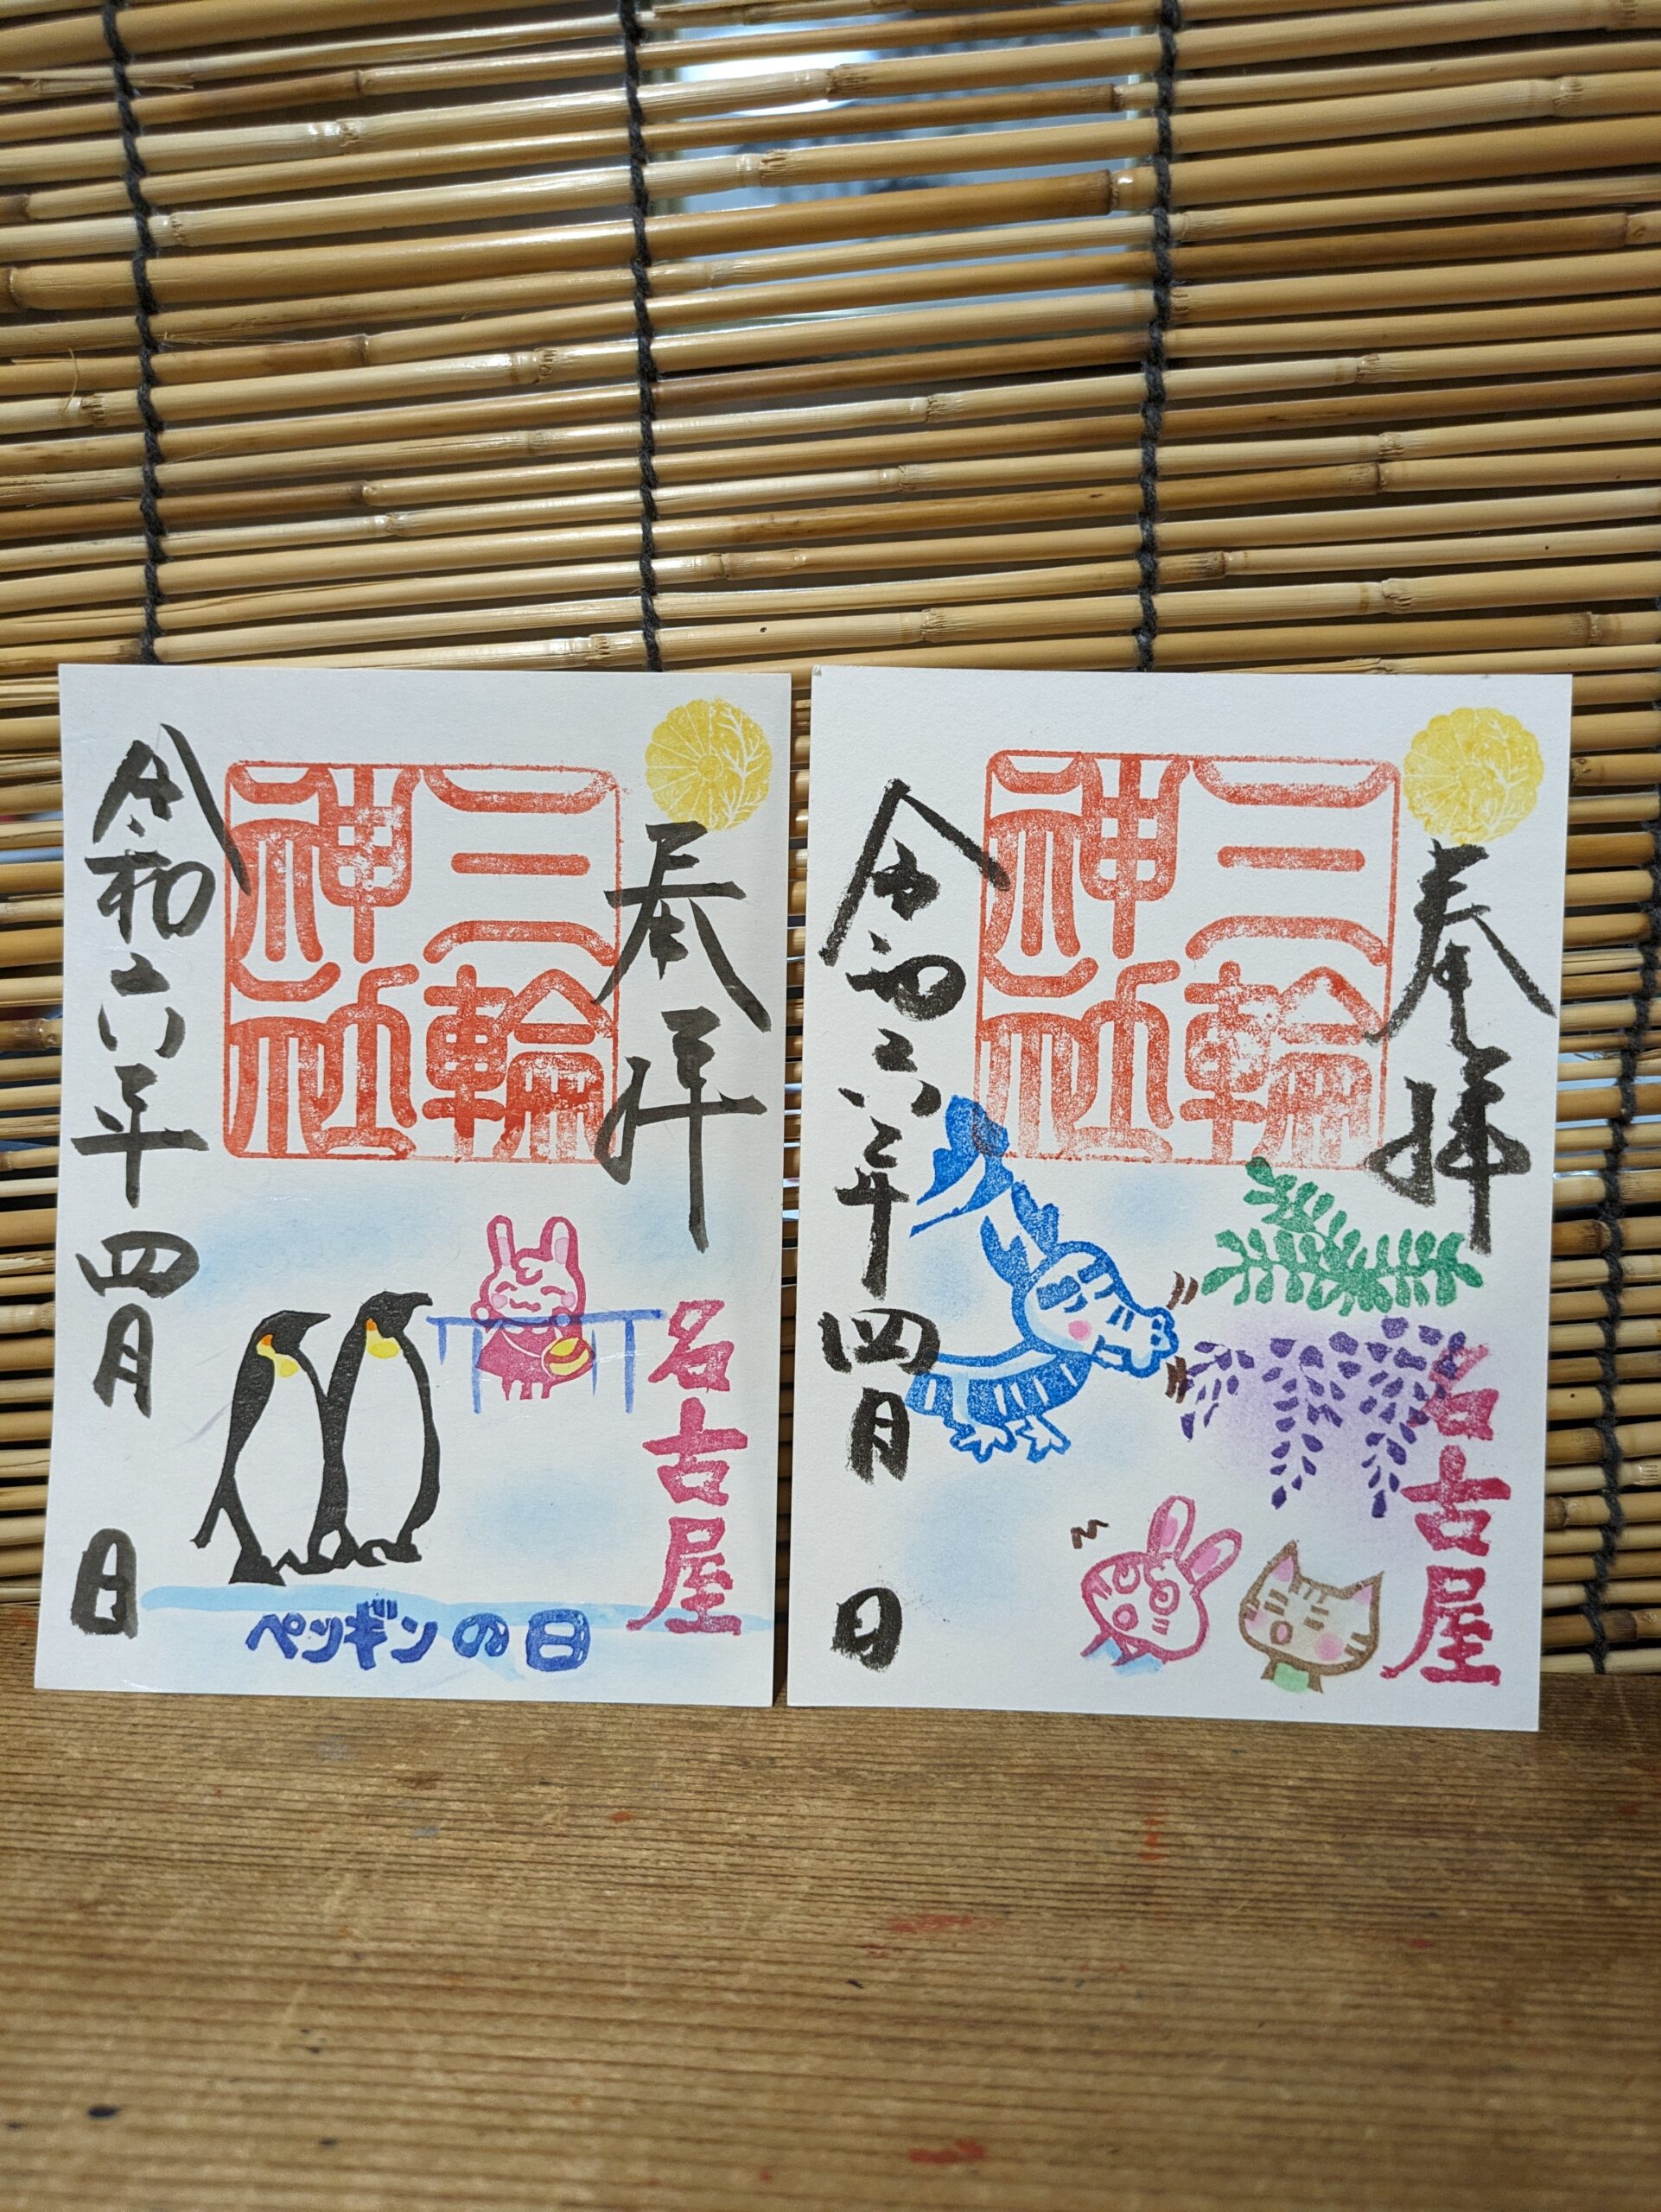 奉拝
三輪
神社
名古屋
令和六年四月 日
ペンギンの日
奉拝
三輪
神社
名古屋
令和六年四月 日